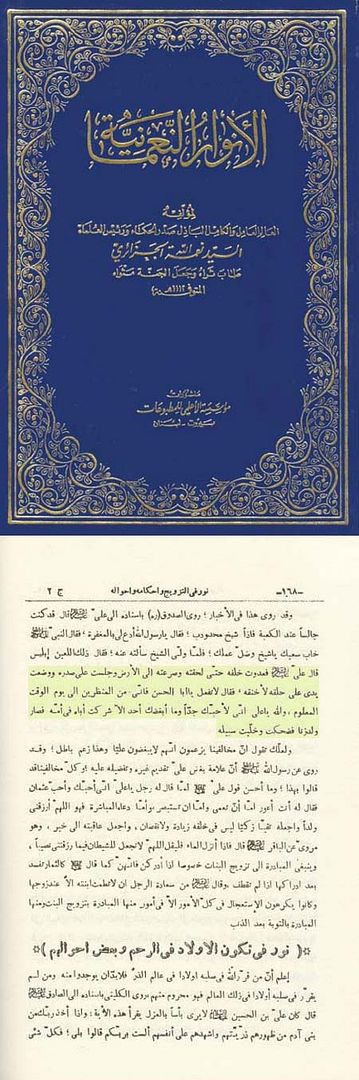 الأنوار النعمانية
لمؤلفه
العالم العامل والكامل الباذل صدر الحكماء ورئيس العلماء
السيد نعمة الله الجزائري
طاب ثراه وجعل الجنة مثواه
المتوفى ١١١٢هـ
منشورات
مؤسسة الأعلمي للمطبوعات
بيروت - لبنان
-١٦٨- نور في التزويج وأحكامه وأحواله ج ٢
وقد روى هذا في الأخبار؛ روى الصدوق (ره) باسناده الى علي قال قد كنت
جالساً عند الكعبة فاذا شيخ محدودب؛ فقال يارسول الله ادع لي بالمغفرة؛ فقال النبي
خاب سعيك ياشيخ وضلّ عملك؛ فلما ولّى الشيخ سألته عنه؛ فقال ذلك اللعين إبليس
قال علي فعدوت خلفه حتى لحقته وصرعته الى الأرض وجلست على صدره ووضعت
يدي على حلقه لأخنقه؛ فقال لاتفعل يا ابا الحسن فانّي من المنظرين الى يوم الوقت
المعلوم، والله ياعلي انّي لأحبّك جدّاً وما أبغضك أحد الاّ شركت أباه في أمّه فصار
ولدزنا فضحكت وخلّيت سبيله
ولعلّك تقول انّ مخالفينا يزعمون انّهم لايبغضون عليّا وهذا زعم باطل؛ وقد
روى عن رسول الله انّ علامة بغض علي تقديم غيره وتفضيله عليه؛ وكل مخالفينا قد
قالوا بهذا؛ وما أحسن قول علي لمّا قال له رجل ياعلي انّي أحبّك وأحب عثمان
فقال له أنت أعور امّا أن تعمى وامّا ان تستبصر، وامّا دعاء المباشرة فهو اللهم ارزقني
ولداً واجعله تقيّا زكيّا ليس في خلقه زيادة ولا نقصان، واجعل عاقبته الى خير، وهو
مروىّ عن الباقر قال فاذا أنزل الماء فليقل اللهم لا تجعل للشيطان فيما رزقتني نصيباً،
وينبغي المبادرة الى تزويج البنات خصوصا اذا أدركن فانّهن كما قال كالثمار تفسد
بعد ادراكها اذا لم تقطف، وقال من سعادة الرجل ان لاتطمث ابنته الاّ عند زوجها
وكانوا يكرهون الإستعجال في كل الأمور الاّ في أمور منها المبادرة بتزويج البنت ومنها
المبادرة بالتوبة بعد الذنب
﴿ نور في تكون الاولاد في الرحم وبعض احوالهم ﴾
إعلم أنّ من قرّر الله في صلبه اولادا في عالم الذرّ فلابدّان يوجدوا منه ومن لم
يقرّر في صلبه أولادا في ذلك العالم فهو محروم منهم، روى الكليني باسناده الى الصادق
قال كان علي بن الحسين لايرى بأساً بالعزل يقرأ هذه الآية؛ واذا أخذ ربّك من
بني آدم من ظهورهم ذريّتهم واشهدهم على أنفسهم ألست بربّكم قالوا بلى؛ فكل شئ